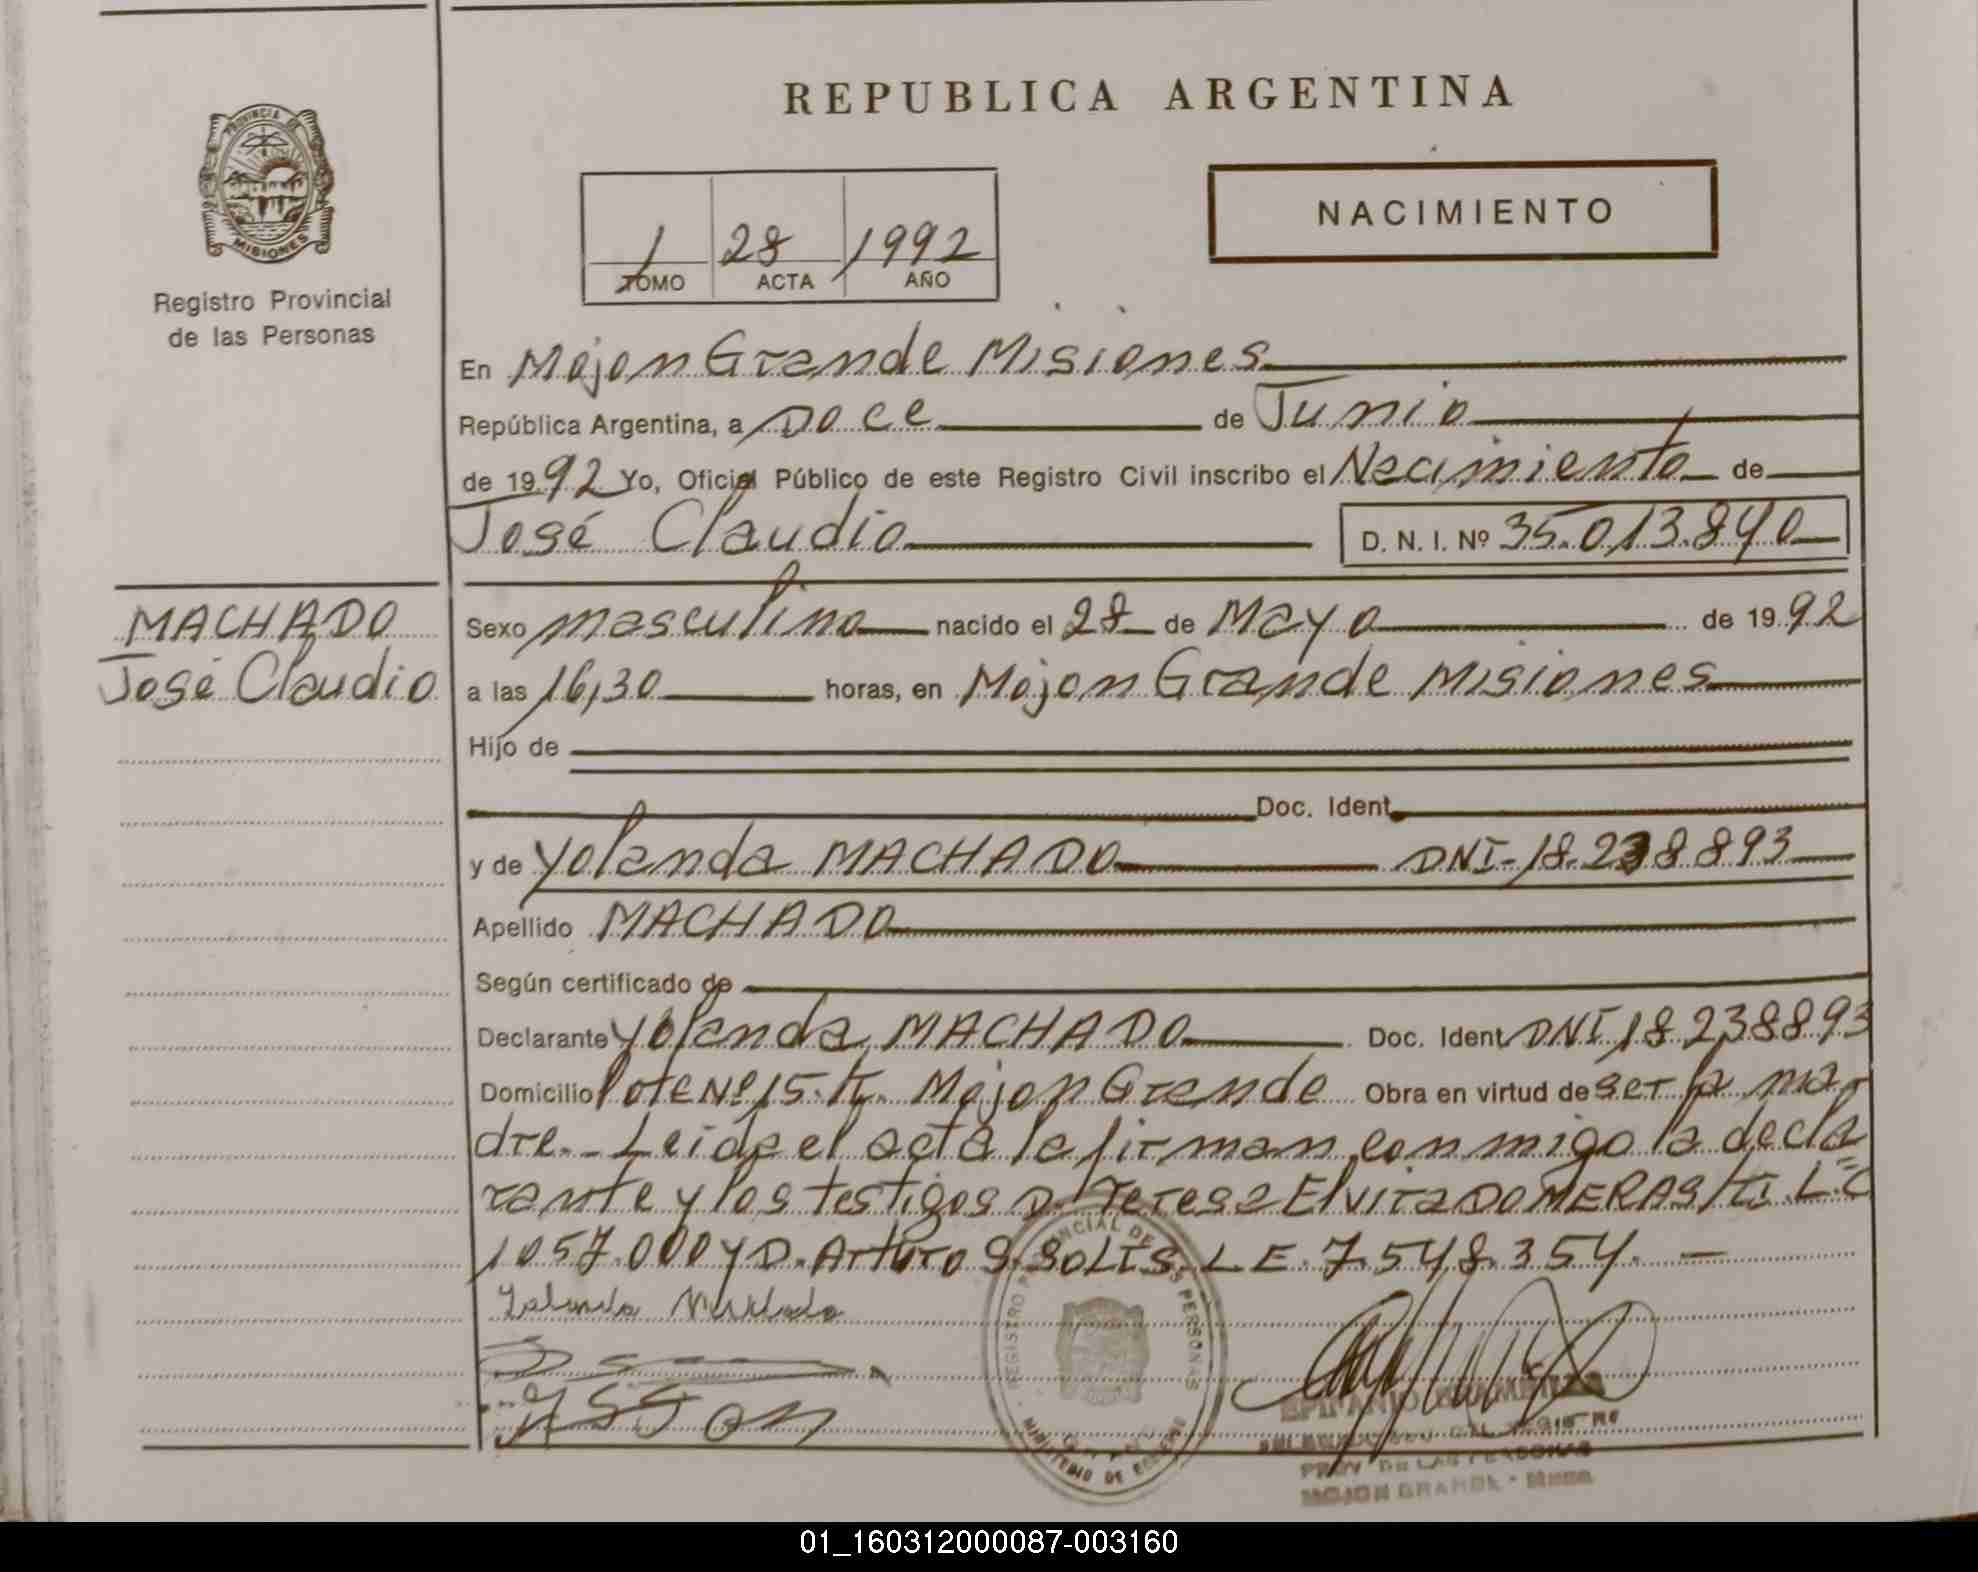 REPUBLICA ARGENTINA
PROVINCIA DE
MISIONES
Registro Provincial
de las Personas
NACIMIENTO
1 28 1992
TOMO ACTA AÑO
En Mojon Grande Misiones
República Argentina, a Doce de Junio
de 1992 Yo, Oficial Público de este Registro Civil inscribo el Nacimiento de
José Claudio D. N. I. Nº 35.013.840
MACHADO
José Claudio
Sexo masculino nacido el 28 de Mayo de 1992
a las 16,30 horas, en Mojon Grande Misiones
Hijo de
Doc. Ident.
y de Yolanda MACHADO DNI-18.238893
Apellido MACHADO
Según certificado de
Declarante Yolanda MACHADO Doc. Ident DNI 18238893
Domicilio lote Nº 15. Mojon Grande Obra en virtud de ser la ma
dre.- Leida el acta la firman conmigo la decla
rante y los testigos D. Teresa Elvira DOMERASKI. L.C
1057.000 y D. Arturo S. SOLIS. L E. 7.548.354. -
Yolanda Machado
REGISTRO PROVINCIAL DE LAS PERSONAS
MINISTERIO DE GOBIERNO
PROV. DE LAS PERSONAS
MOJON GRANDE - Mnes
01_160312000087-003160